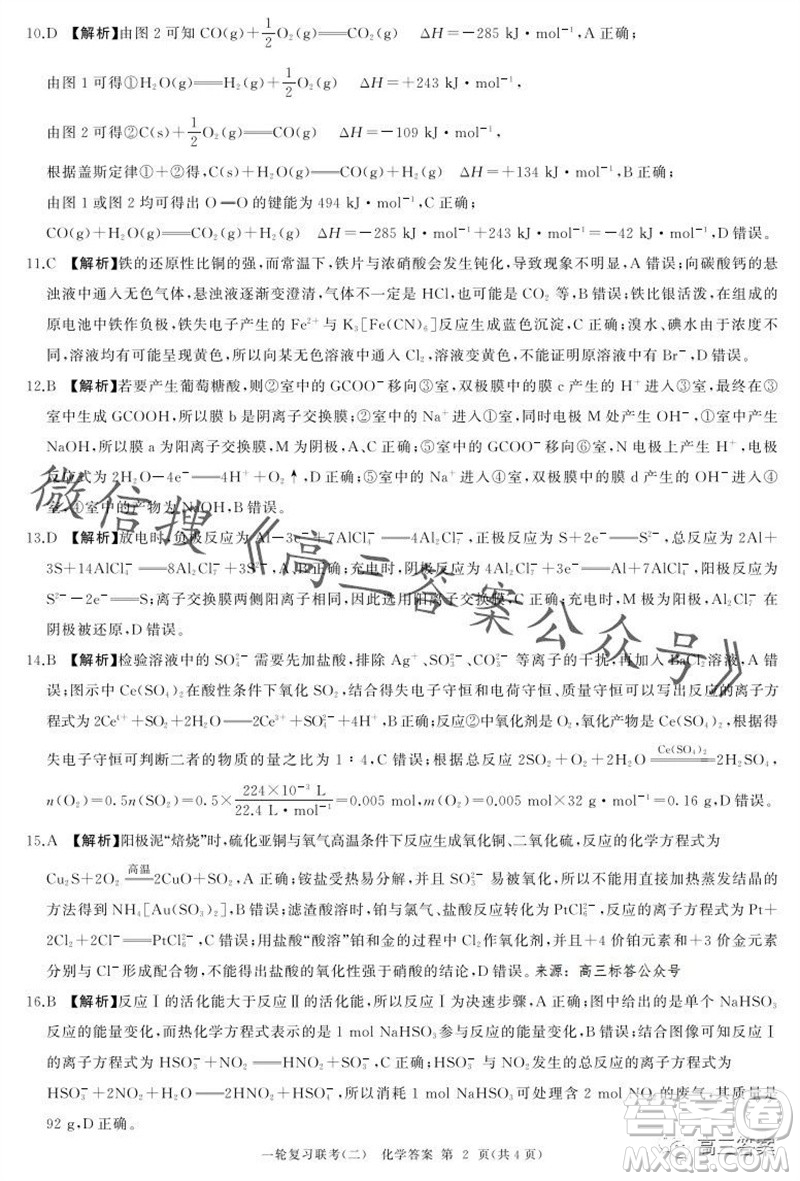 10.D 【解析】由图2可知CO(g)+1/2O₂(g)══CO₂(g) ΔH=-285 kJ·mol⁻¹,A正确;
由图1可得①H₂O(g)══H₂(g)+1/2O₂(g) ΔH=+243 kJ·mol⁻¹,
由图2可得②C(s)+1/2O₂(g)══CO(g) ΔH=-109 kJ·mol⁻¹,
根据盖斯定律①+②得,C(s)+H₂O(g)══CO(g)+H₂(g) ΔH=+134 kJ·mol⁻¹,B正确;
由图1或图2均可得出O═O的键能为494 kJ·mol⁻¹,C正确;
CO(g)+H₂O(g)══CO₂(g)+H₂(g) ΔH=-285 kJ·mol⁻¹+243 kJ·mol⁻¹=-42 kJ·mol⁻¹,D错误。
11.C 【解析】铁的还原性比铜的强,而常温下,铁片与浓硝酸会发生钝化,导致现象不明显,A错误;向碳酸钙的悬
浊液中通入无色气体,悬浊液逐渐变澄清,气体不一定是HCl,也可能是CO₂等,B错误;铁比银活泼,在组成的
原电池中铁作负极,铁失电子产生的Fe²⁺与K₃[Fe(CN)₆]反应生成蓝色沉淀,C正确;溴水、碘水由于浓度不
同,溶液均有可能呈现黄色,所以向某无色溶液中通入Cl₂,溶液变成黄色,溶液中不一定含有Br⁻,D错误。
12.B 【解析】若要产生葡萄糖酸,则②室中的GCOO⁻移向③室,双极膜中的膜c产生的H⁺进入③室,最终在③
室中生成GCOOH,所以膜b是阴离子交换膜;②室中的Na⁺进入①室,同时电极M处产生OH⁻,①室中产生
NaOH,所以膜a为阳离子交换膜,M为阴极,A、C正确;⑤室中的GCOO⁻移向⑥室,N电极产生H⁺,电极
反应式为2H₂O-4e⁻══4H⁺+O₂↑,D正确;⑤室中的Na⁺进入④室,双极膜中的膜d产生的OH⁻进入④
室,④室中的产物为NaOH,B错误。
13.D 【解析】放电时,负极反应为Al-3e⁻+7AlCl₄⁻══4Al₂Cl₇⁻,正极反应为S+2e⁻══S²⁻,总反应为2Al+
3S+14AlCl₄⁻══8Al₂Cl₇⁻+3S²⁻,A正确;充电时,Al电极为阴极,阴极反应为4Al₂Cl₇⁻+3e⁻══Al+7AlCl₄⁻,阳极反应为
S²⁻-2e⁻══S;离子交换膜两侧阳离子相同,因此选用阳离子交换膜,M为阳极,Al₂Cl₇⁻在
阴极被还原,D正确。
14.B 【解析】检验溶液中的SO₄²⁻需要先加盐酸,排除Ag⁺、SO₃²⁻、CO₃²⁻等离子的干扰,再加入BaCl₂溶液,A错
误;图示中Ce(SO₄)₂在酸性条件下氧化SO₂,结合得失电子守恒和电荷守恒、质量守恒可知,发生反应的离子方
程式为2Ce⁴⁺+SO₂+2H₂O══2Ce³⁺+SO₄²⁻+4H⁺,B正确;反应中氧化剂是O₂,氧化产物是Ce(SO₄)₂,根据得
失电子守恒可判断二者的物质的量之比为1∶4,C错误;根据总反应2SO₂+O₂+2H₂O══(Ce(SO₄)₂)2H₂SO₄,
n(O₂)=0.5n(SO₂)=0.5×(224×10⁻³ L)/(22.4 L·mol⁻¹)=0.005 mol,m(O₂)=0.005 mol×32 g·mol⁻¹=0.16 g,D错误。
15.A 【解析】阳极泥“焙烧”时,硫化亚铜与氧气高温条件下反应生成氧化铜、二氧化硫,反应的化学方程式为
Cu₂S+2O₂══(高温)2CuO+SO₂,A正确;铵盐受热易分解,且SO₃²⁻易被氧化,所以不可采用加热蒸发结晶的
方法得到NH₄[Au(SO₃)₂],B错误;滤渣酸溶时,铂与氯气、盐酸反应转化为PtCl₆²⁻,反应的离子方程式为Pt+
2Cl₂+2Cl⁻══PtCl₆²⁻,C错误;用盐酸“酸溶”铂和金的过程中Cl₂作氧化剂,并且+4价铂元素和+3价金元素
分别与Cl⁻形成配离子,并不能得出盐酸的氧化性强于硝酸的结论,D错误。来源:高三标答公众号
16.B 【解析】反应Ⅰ的活化能大于反应Ⅱ的活化能,所以Ⅰ为决速步骤,A正确;图中以单个NaHSO₃
反应的能量变化,而热化学方程式表示的是1 mol NaHSO₃参与反应的能量变化,B错误;结合图像可知反应Ⅰ
的离子方程式为HSO₃⁻+NO₂══HSO₃+NO₂⁻,C正确;总反应的离子方程式为
HSO₃⁻+2NO₂+H₂O══HSO₄⁻+2HNO₂,所以消耗1 mol NaHSO₃可处理含2 mol NO₂的废气,其质量是
92 g,D正确。
一轮复习联考(二) 化学答案 第 2 页(共4页)
微信搜《高三答案公众号》
答案圈
高三答案